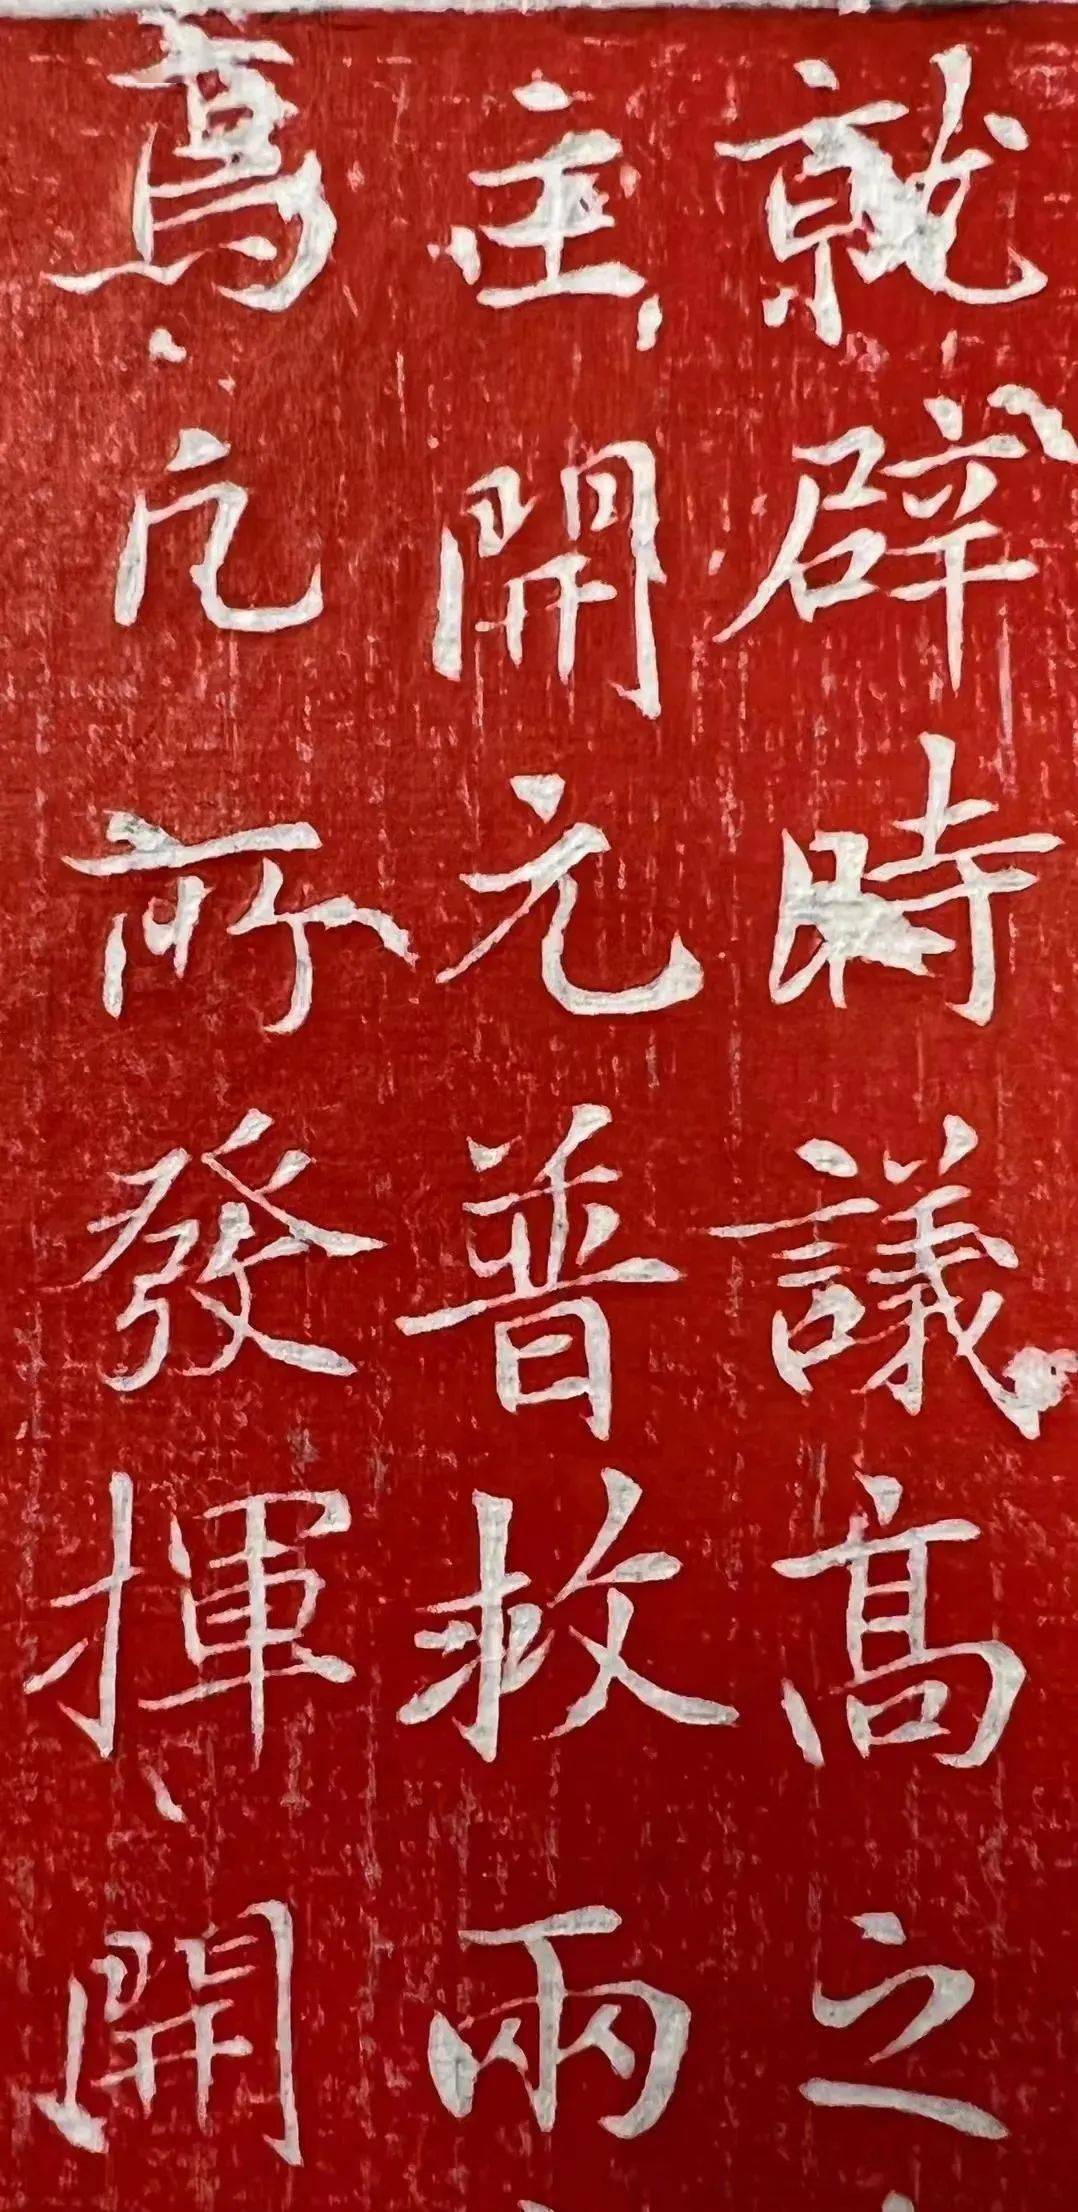 就辟時議高之
主開元普救兩
焉凡所發揮開